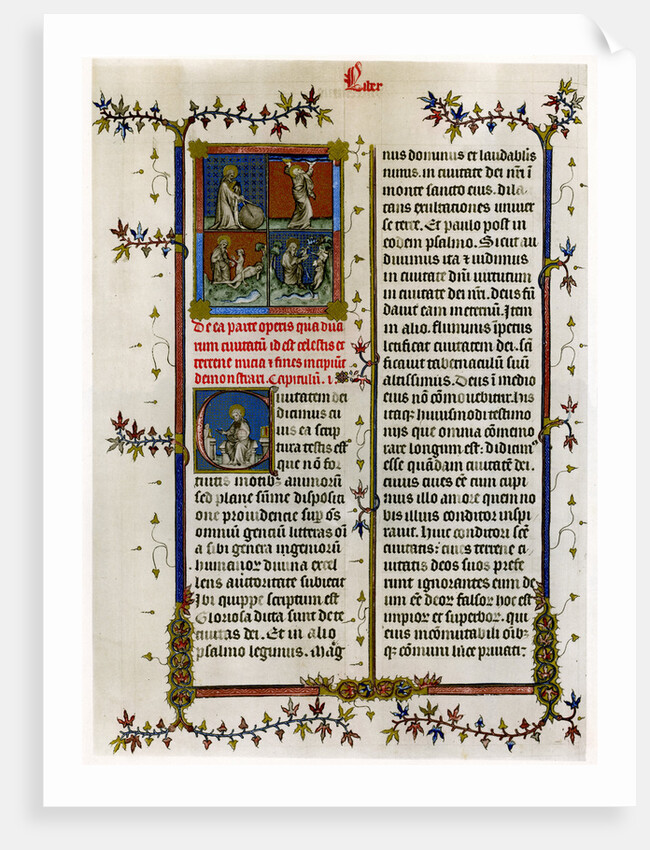 Liber
De ea parte operis qua dua
rum ciuitatum id est celestis et
terrene inicia & fines incipiūt
demonstrari. Capitulū. i.
Ciuitatem dei
dicimus cu
ius ea scrip
tura testis est
que nō for
tuitis motibꝫ animorū
sed plane sūme dispositi
one prouidencie suꝑ oīs
omniū genciū litteras oīa
sibi genera ingeniorū
humanor̄ diuina excel
lens auctoritate subiecit
Ibi quippe scriptum est
Gloriosa dicta sunt de te
ciuitas dei. Et in alio
psalmo legimus. Mag
nus dominus et laudabilis
nimis. in ciuitate dei nr̄i ī
monte sancto eius. dila
tans exultationes uniuer
se terre. Et paulo post in
eodem psalmo. Sicut au
diuimus ita & uidimus
in ciuitate dn̄i uirtutum
in ciuitate dei nr̄i. deus fū
dauit eam in eternū. Item
in alio. fluminis īpetus
letificat ciuitatem dei. sc̄ti
ficauit tabernaculū suū
altissimus. Deus ī medio
eius nō cōmouebitur. his
atqꝫ huiusmodi testimo
nijs que omnia cōmemo
rare longum est. didicim᷒
esse quādam ciuitatē dei.
cuius ciues eē cum cupi
mus illo amore quem no
bis illius conditor inspi
rauit. Huic conditori sc̄e
ciuitatis. ciues terrene ci
uitatis deos suos prefe
runt ignorantes eum de
um eē deor̄ falsor̄ hoc est
impior̄ et superbor̄. qui
eius incōmutabili oībꝫ
qꝫ cōmuni luce priuati.